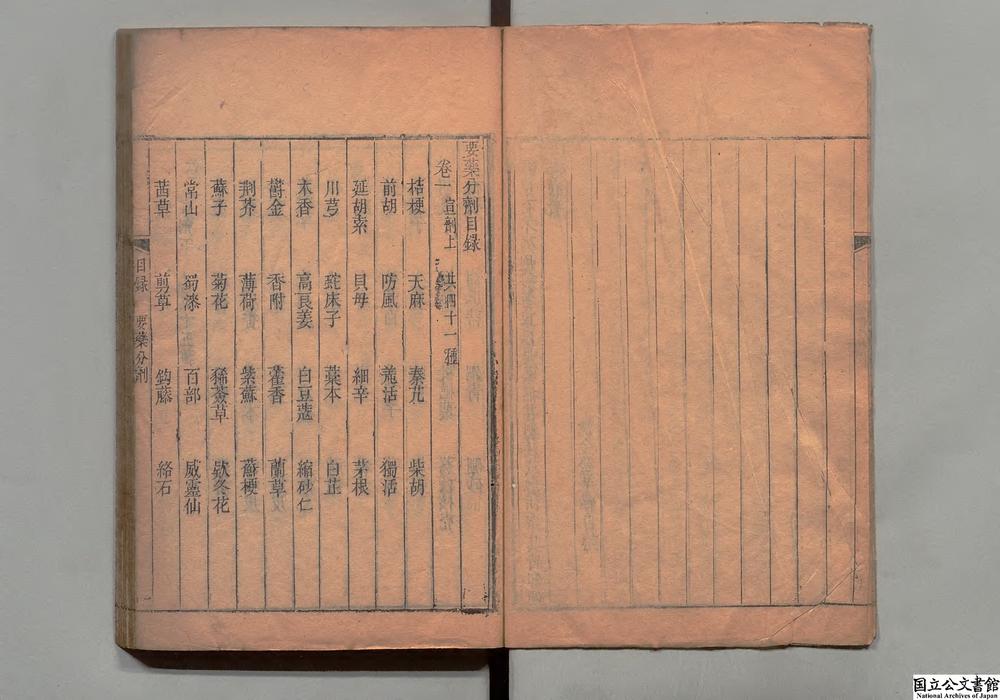 要藥分劑目録
卷一 宣劑上 共四十一種
桔梗 天麻 秦艽 柴胡
前胡 防風 羌活 獨活
延胡索 貝母 細辛 茅根
川芎 蛇床子 藁本 白芷
木香 高良姜 白豆蔻 縮砂仁
欝金 香附 藿香 蘭草
荆芥 薄荷 紫蘇 蘇梗
蘇子 菊花 豨薟草 款冬花
常山 蜀漆 百部 威靈仙
茜草 剪草 鈎藤 絡石
目録 要藥分劑
国立公文書館
National Archives of Japan